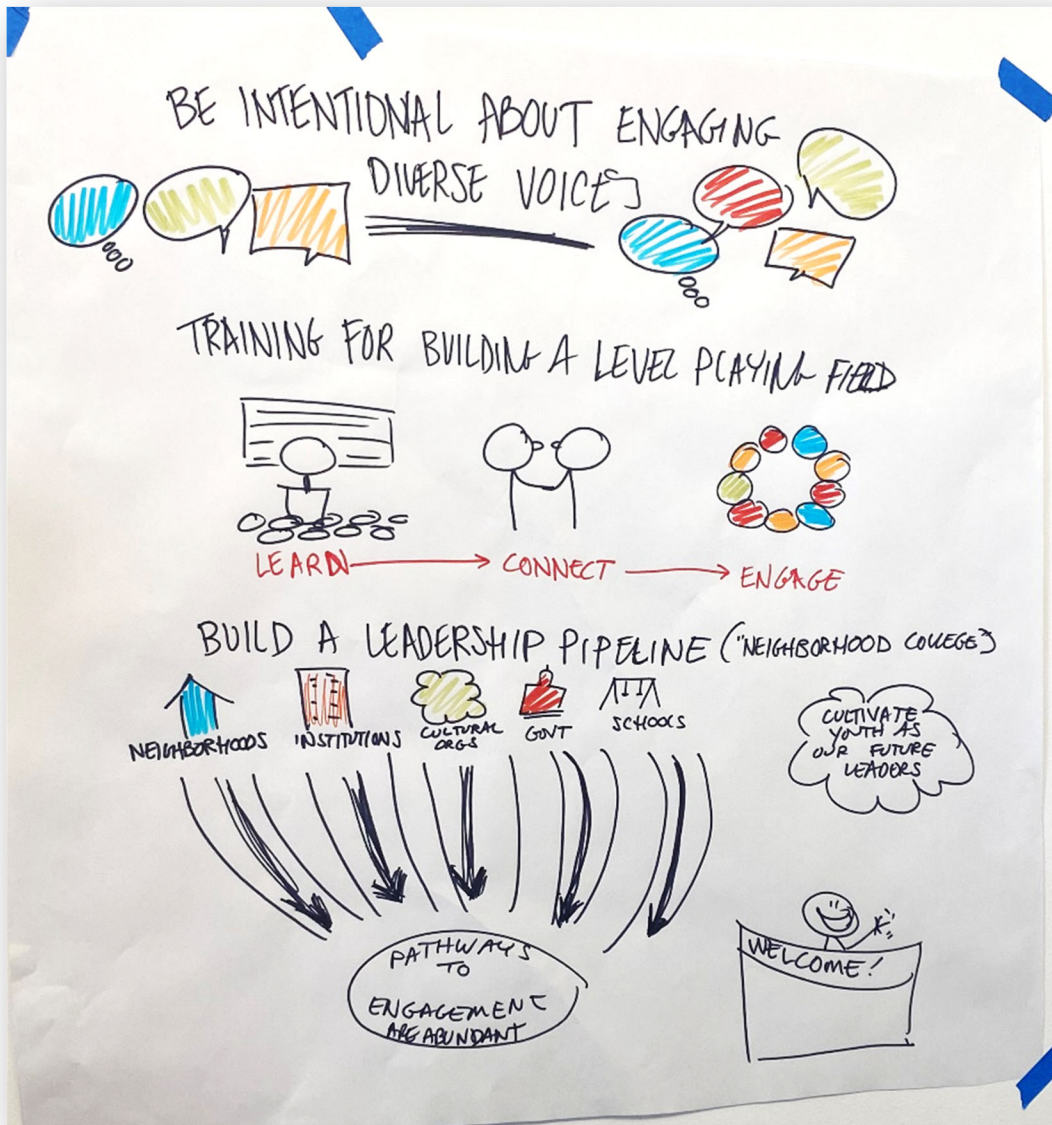 BE INTENTIONAL ABOUT ENGAGING
DIVERSE VOICES
TRAINING FOR BUILDING A LEVEL PLAYING FIELD
LEARN
CONNECT
ENGAGE
BUILD A LEADERSHIP PIPELINE ("NEIGHBORHOOD COLLEGE")
NEIGHBORHOODS
INSTITUTIONS
CULTURAL
ORGS
GOVT
SCHOOLS
CULTIVATE
YOUTH AS
OUR FUTURE
LEADERS
PATHWAYS
TO
ENGAGEMENT
ARE ABUNDANT
WELCOME!